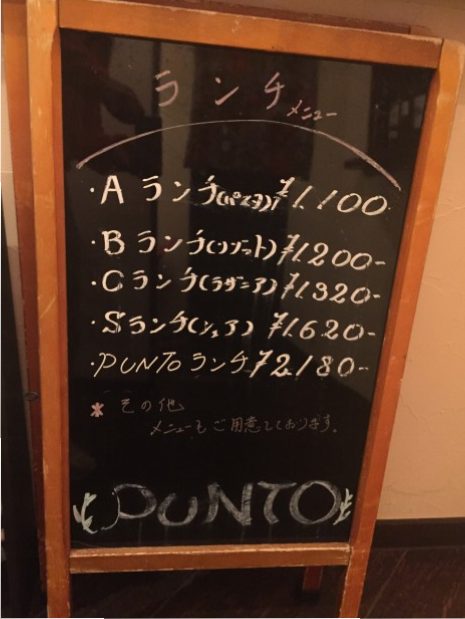 ランチメニュー
・Aランチ(パスタ)¥1.100
・Bランチ(リゾット)¥1200-
・Cランチ(ラザニア)¥1.320-
・Sランチ(シェア)¥1.620-
・PUNTOランチ¥2.180-
* その他
メニューもご用意しております。
PUNTO